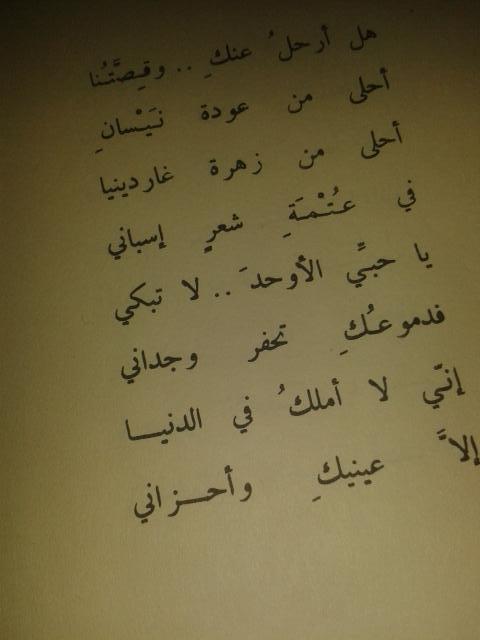 هل أرحلُ عنكِ .. وقِصَّتُنا
أحلى من عودة نَيْسانِ
أحلى من زهرة غاردينيا
في عُتْمَةِ شعرٍ إسباني
يا حبّي الأوحدَ .. لا تبكي
فدموعُكِ تحفر وجداني
إنّي لا أملكُ في الدنيـــا
إلاَّ عينيكِ وأحـــزاني